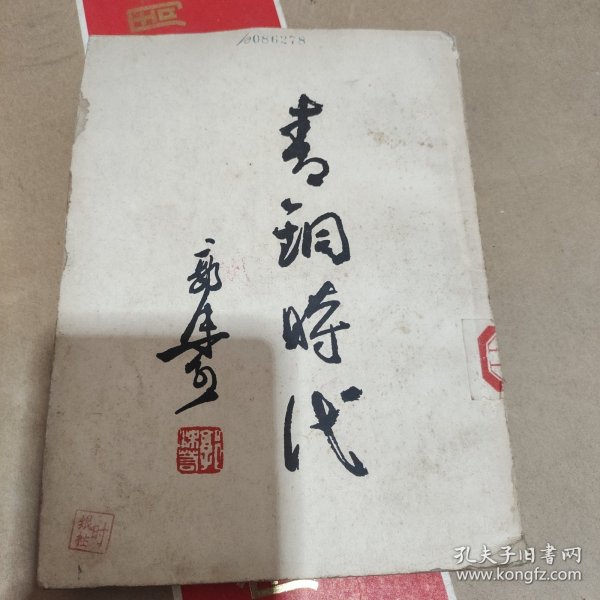 10086278
青銅時代
郭沫若
孔夫子旧书网
www.kongfz.com